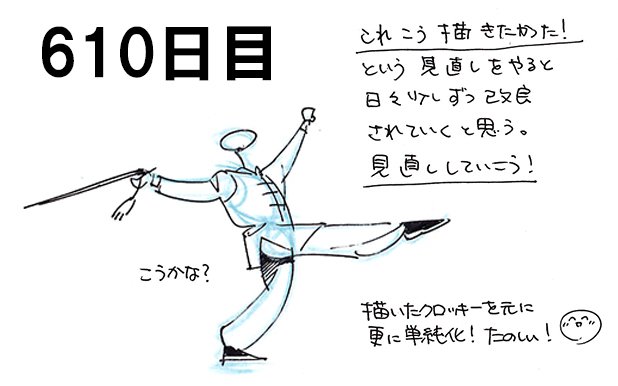 610日目
これ こう 描 きたかった!
という 見直しをやると
日々少しずつ改良
されていくと思う。
見直ししていこう!
こうかな?
描いたクロッキーを元に
更に単純化! たのしい!